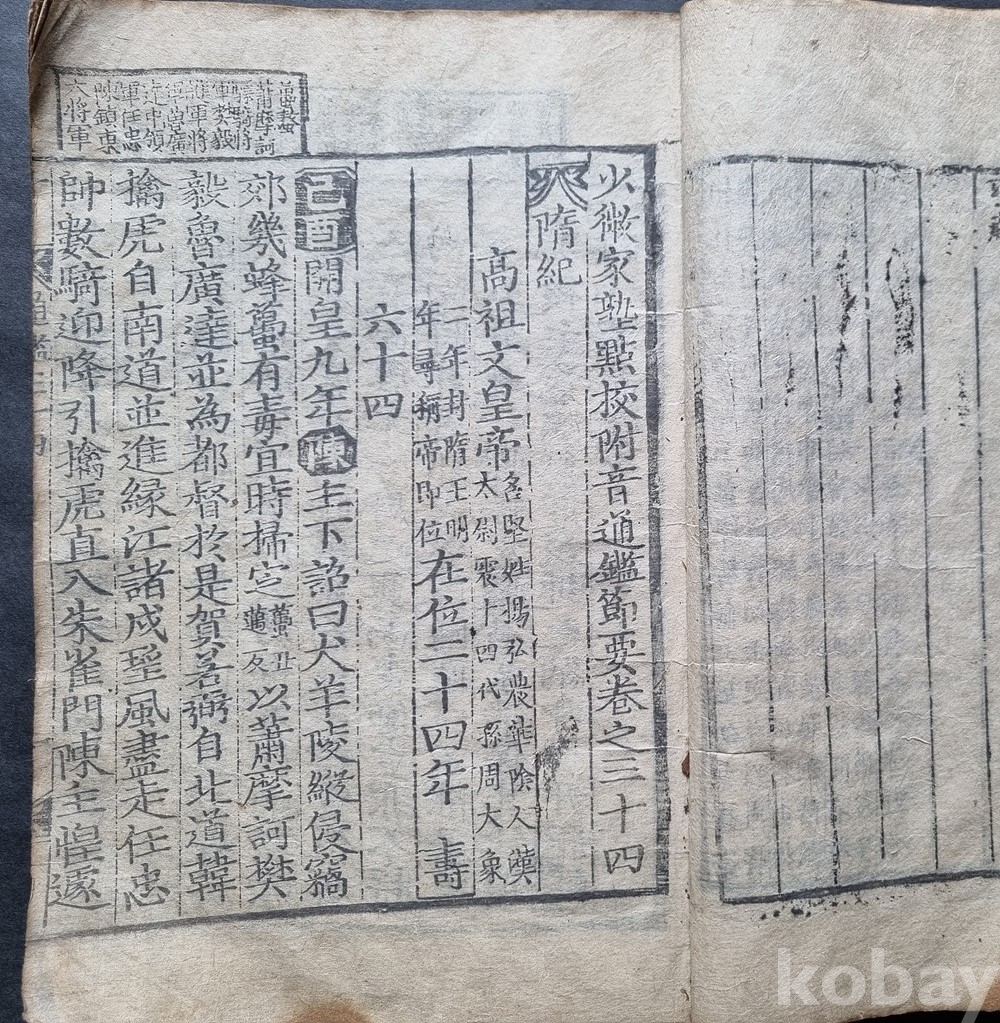 少微家塾點校附音通鑑節要卷之三十四
隋紀
高祖文皇帝 名堅姓楊弘農華陰人漢
太尉震十四代孫周大象
二年封隋王明
年尋稱帝即位 在位二十四年 壽
六十四
己酉 開皇九年 陳主下詔曰犬羊陵縱侵竊
郊畿蜂蠆有毒宜時掃定 蠆丑
邁反 以蕭摩訶樊
毅魯廣達並為都督於是賀若弼自北道韓
擒虎自南道並進緣江諸戍望風盡走任忠
帥數騎迎降引擒虎直入朱雀門陳主惶遽
蕭摩訶
將
軍樊毅
護軍將
軍魯廣
達中領
軍任忠
陳鎮東
大將軍
kobay